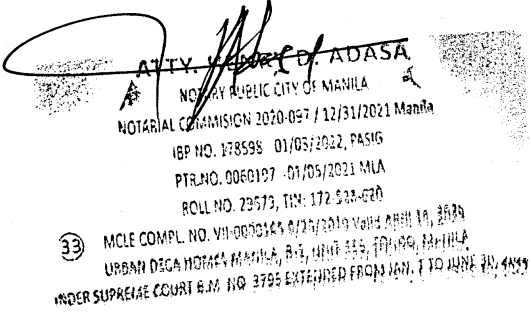 ATTY. D. ADASA
NOTARY PUBLIC CITY OF MANILA
NOTARIAL COMMISION 2020-097 / 12/31/2021 Manila
IBP NO. 178598 01/03/2022, PASIG
PTR.NO. 0060197 -01/05/2021 MLA
ROLL NO. 29573, TIN: 172-528-620
33 MCLE COMPL. NO. VII-0000165 Valid
URBAN DECA HOMES MANILA, B-2, UNIT 355, TONDO, MANILA
UNDER SUPREME COURT B.M NO 3795 EXTENDED FROM JAN. 1 TO JUNE 30,